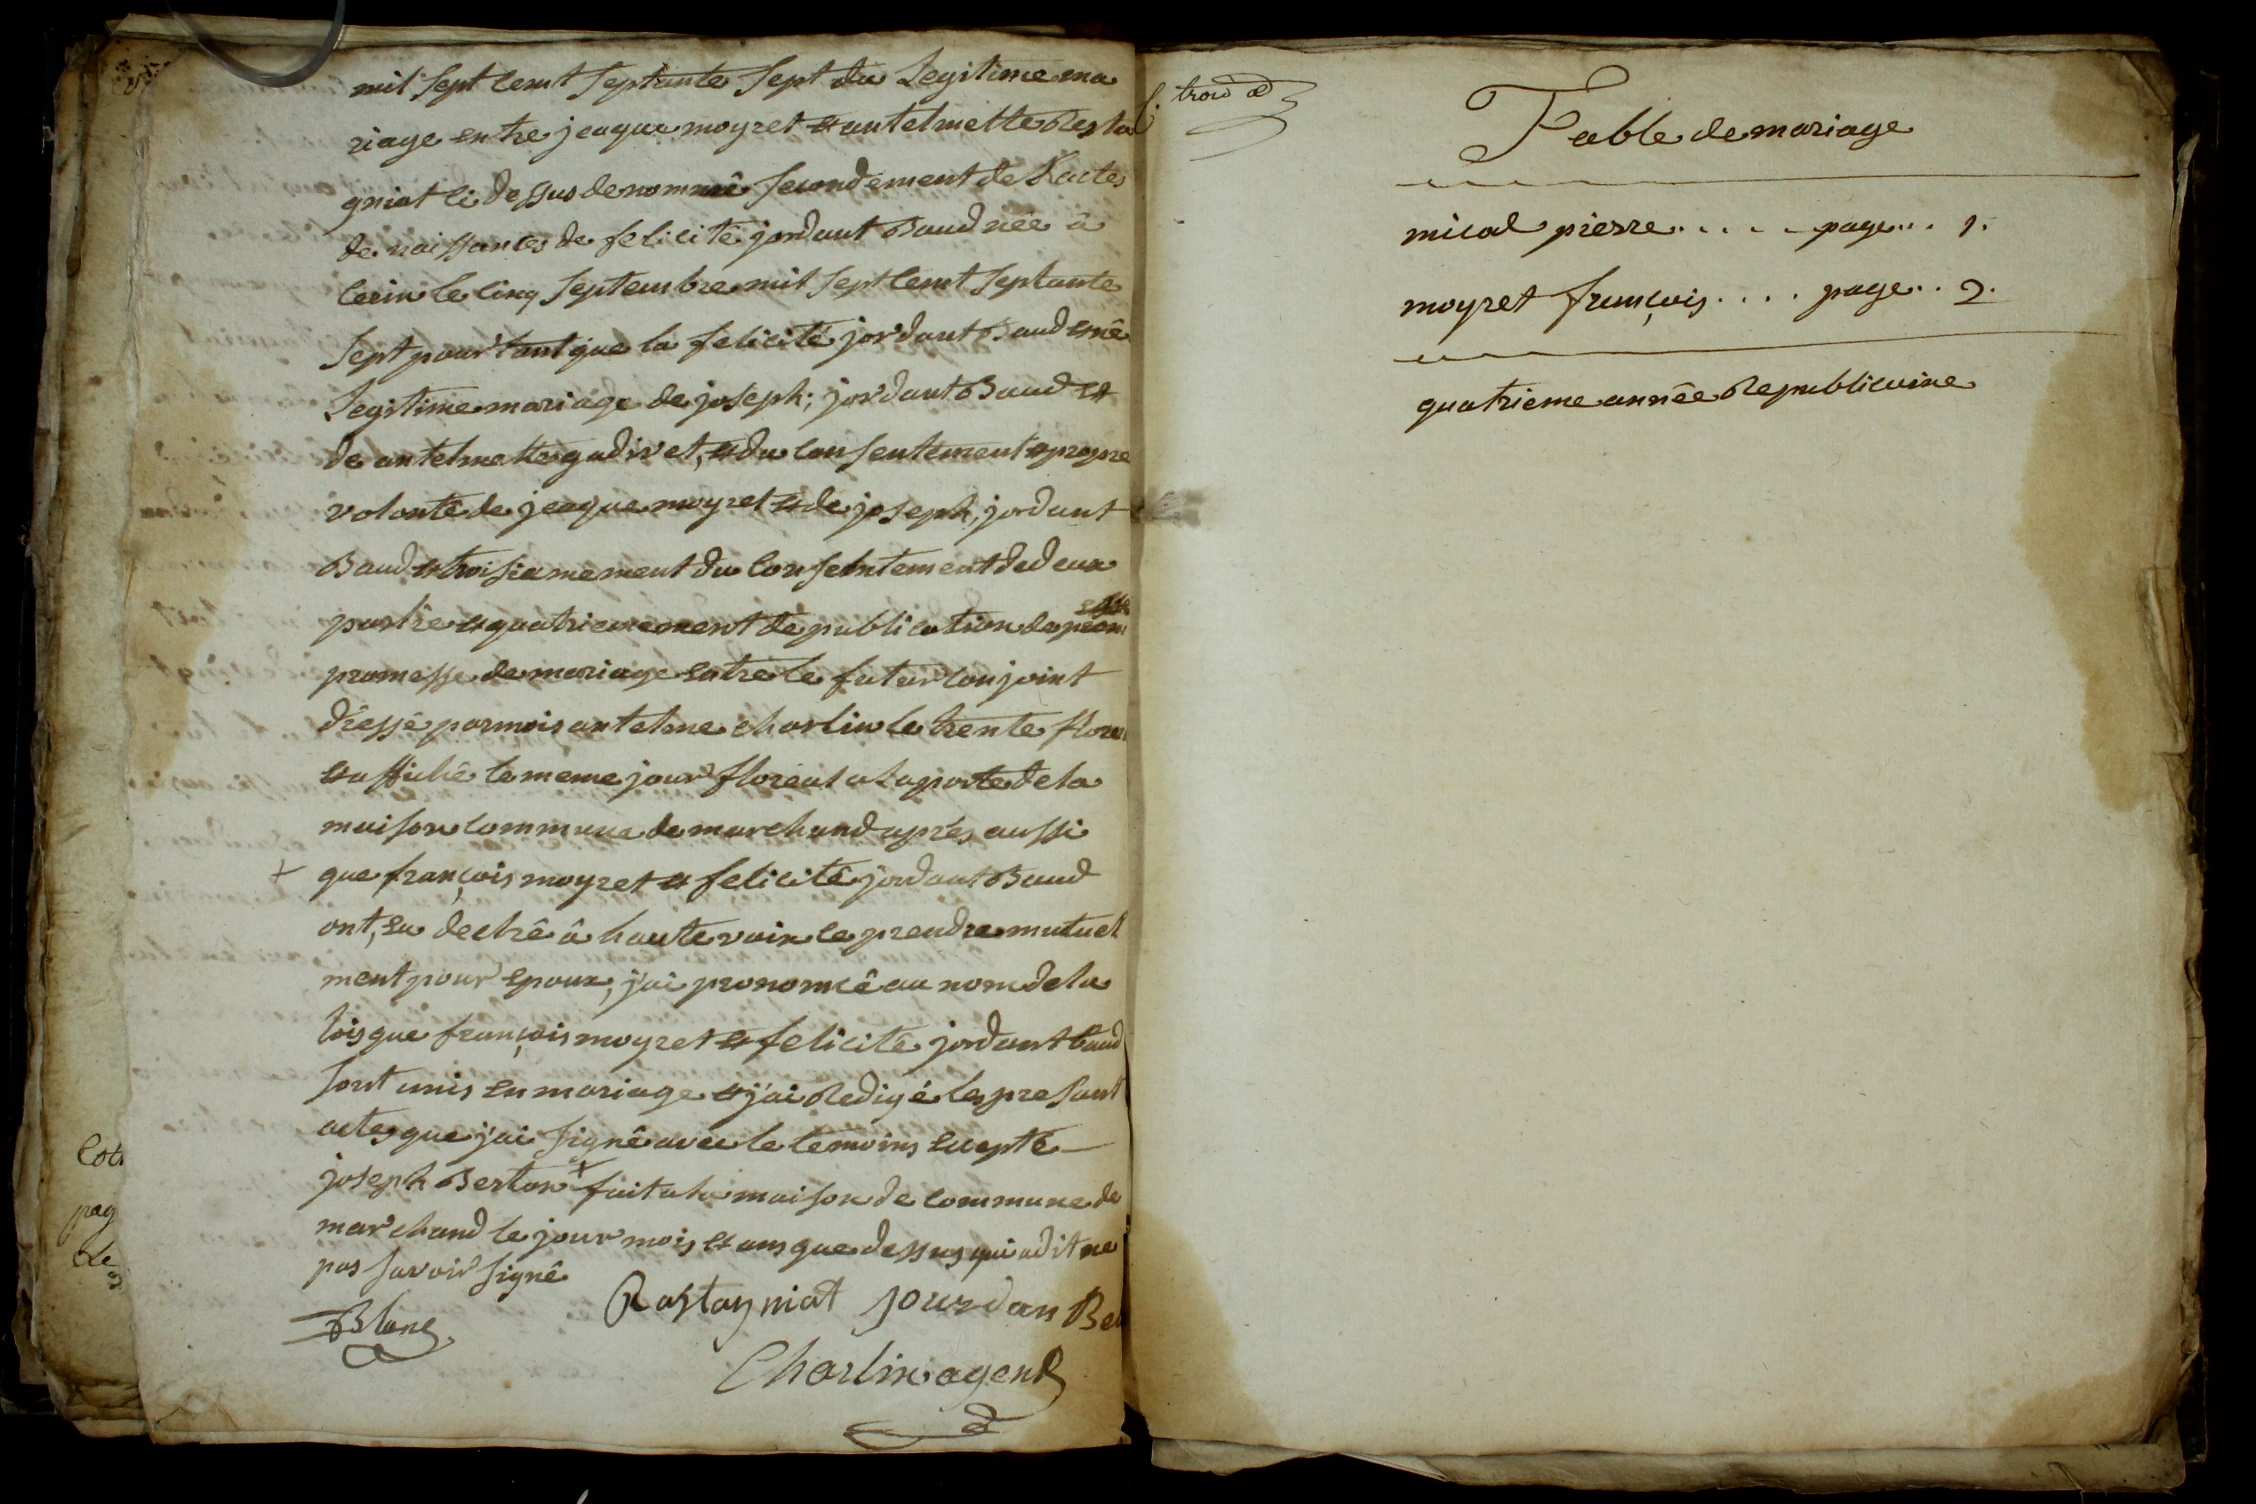 mil sept cent septante sept du Legitime ma
riage entre jeaque moyret et antelmette Resta
gniat ci dessus denommê secondement de Lactes
de naissances de felicitê jordant Baud née â
cerin le cinq septembre mil sept cent septante
sept pour tant que la felicité jordant Baud et né
Legitime mariage de joseph; jordant Baud et
de antelmette gudivet, et du consentement et propre
volonté de jeaque moyret et de joseph, jordant
Baud et troisiemement du consentement de deux
partie et quatriemement de publication de
promesse de mariage entre le futur conjoint
dressé par mois antelme charlin le trente flore
et affiché le meme jour floreal a La porte de la
maison commune de marchand après aussi
que françois moyret et felicité jordant Baud
ont, eu declré â haute voix ce prendre mutuel
ment pour epoux, j'ai prononcé au nom de la
lois que françois moyret et felicité jordant baud
sont unis en mariage et j'ai Redigé les presant
actes que j'ai signé avec le temoins excepté
joseph Berton fait a la maison de commune de
marchand le jour mois et ans que dessus qui a dit ne
pas savoir signé
Blanc
Rastagniat jourdan Be
Charlin agent
Cot
pag
de
trois
Table de mariage
mical pierre..... page... 1.
moyret françois.... page.. 2.
quatrieme année Republicaine